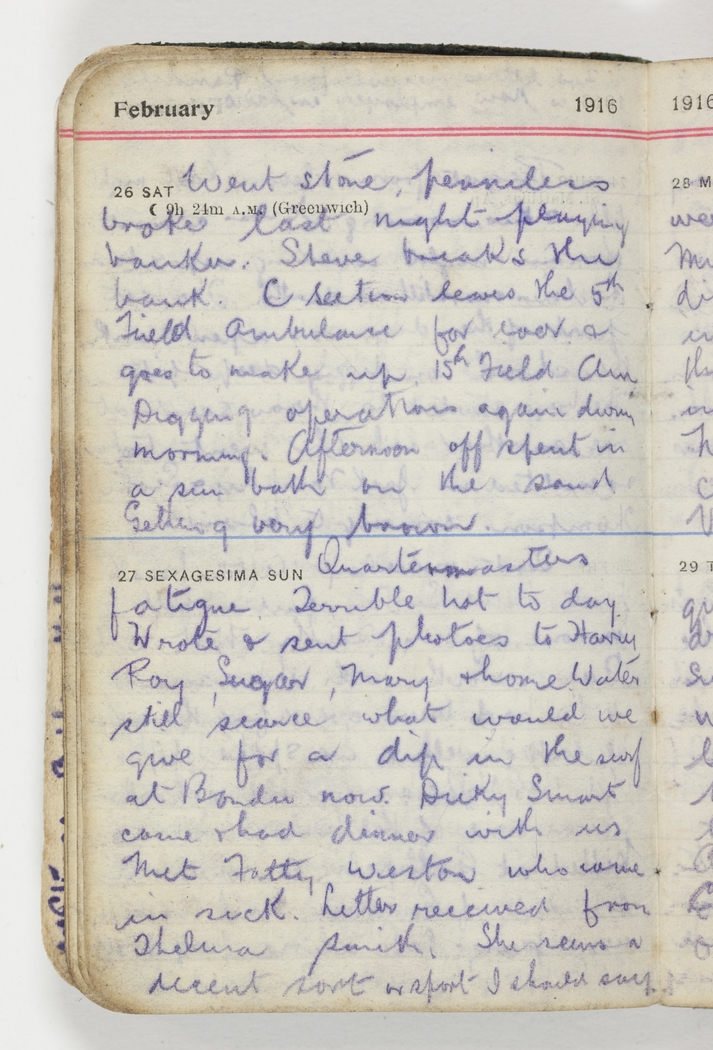 February 1916
26 SAT Went stone, penniless
☾ 9h 24m A.M. (Greenwich)
broke last night playing
banker. Steve breaks the
bank. C section leaves the 5th
Field Ambulance for ever &
goes to make up 15th Field Am
Digging operations again during
morning. Afternoon off spent in
a sun bath on the sand
Getting very brown.
27 SEXAGESIMA SUN Quartermasters
fatigue. Terrible hot to day
Wrote & sent photoes to Harry
Roy, Sugar, Mary & home Water
still scarce what would we
give for a dip in the surf
at Bondu now. Dicky Smart
came & had dinner with us
Met Fatty Weston who came
in sick. Letter received from
Thelma Smith. She seems a
decent sort or sport I should say
1916
28 M
we
Mu
di
in
th
in
29 T
qu
dr
su